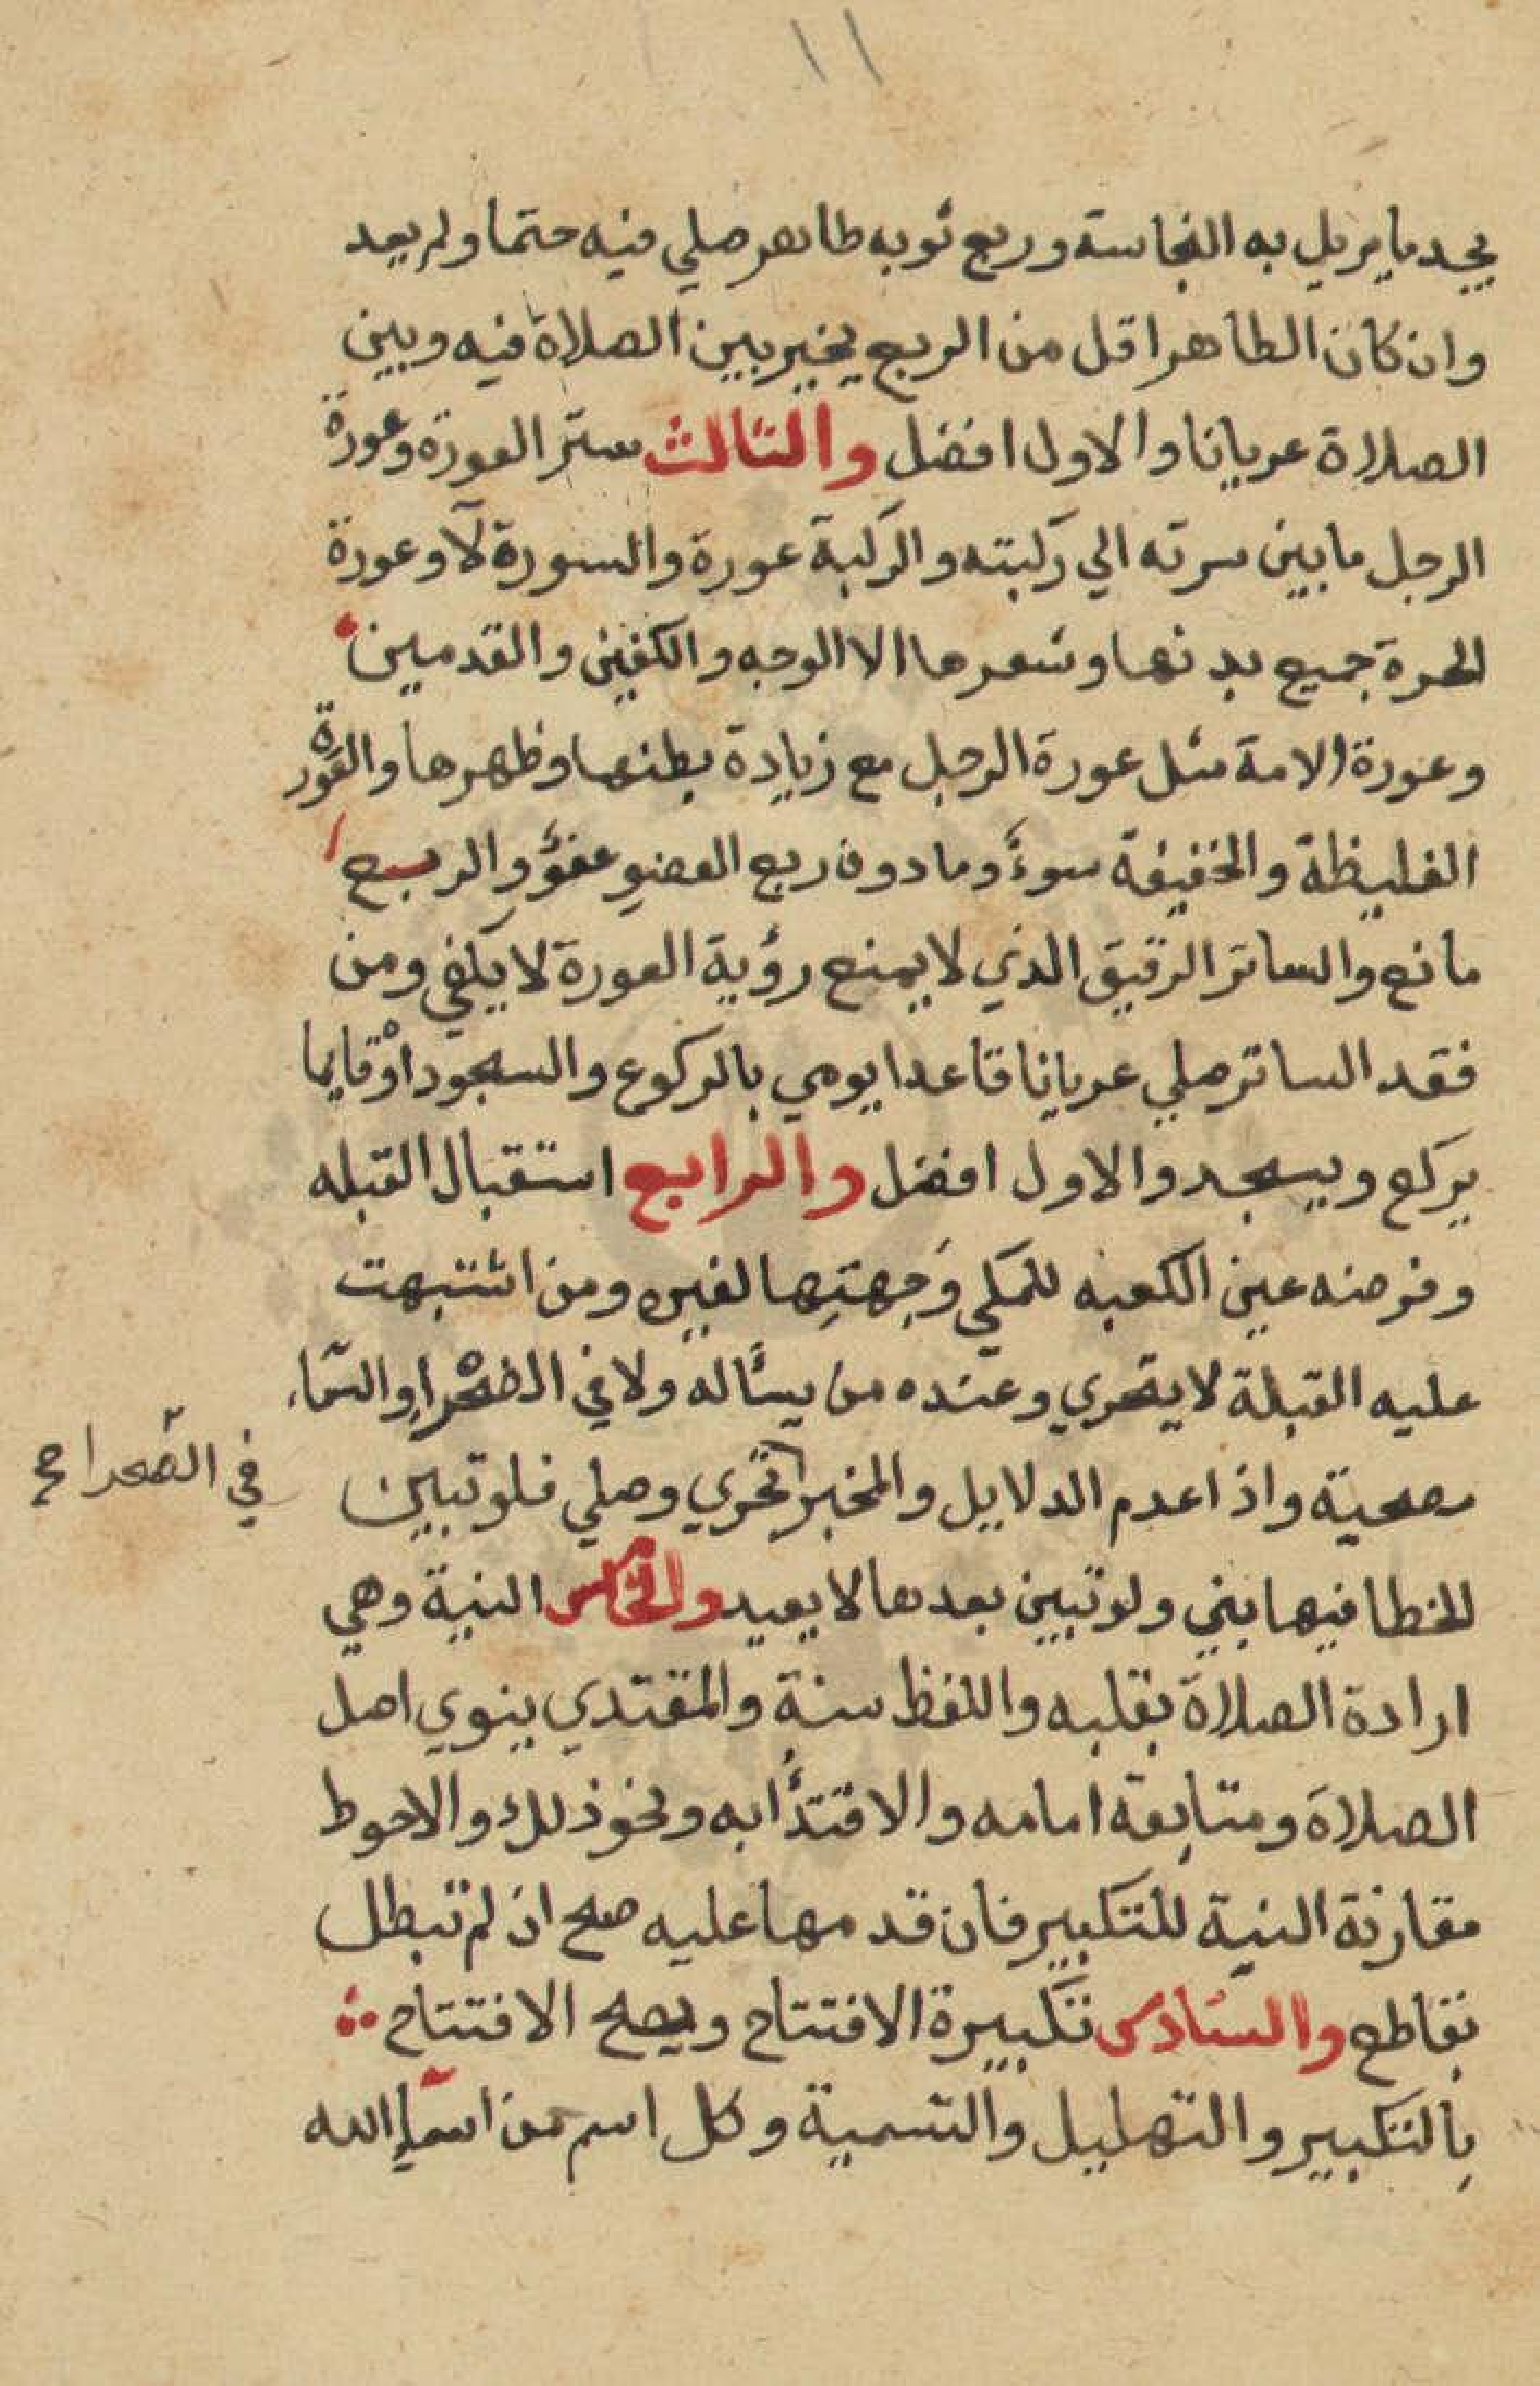 ١١
يجد ما يزيل به النجاسة وربع ثوبه طاهر صلي فيه حتما ولم يعد
وان كان الطاهر اقل من الربع يخير بين الصلاة فيه وبين
الصلاة عريانا والاول افضل والثالث ستر العورة وعورة
الرجل ما بين سرته الي ركبته والركبة عورة والسورة لا وعورة
الحرة جميع بدنها وشعرها الا الوجه والكفين والقدمين
وعورة الامة مثل عورة الرجل مع زيادة بطنها وظهرها والعورة
الغليظة والخفيفة سوءً وما دون ربع العضو عفوٌ والربع
مانع والساتر الرقيق الذي لا يمنع رؤية العورة لا يكفي ومن
فقد الساتر صلي عريانا قاعدا يومي بالركوع والسجود اوْ قايما
يركع ويسجد والاول افضل والرابع استقبال القبله
وفرضه عين الكعبه للمكي وَجِهتِها لغيره ومن اشتبهت
عليه القبلة لا يتحري وعنده من يسأله ولا في الصْحرا والسّماء
مصحية واذا عدم الدلايل والمخبر تحري وصلي فلو تبين
في الصّحرا صح
الخطا فيها بني ولو تبين بعدها لا يعيد والخامس النية وهي
ارادة الصلاة بقلبه واللفظ سنة والمقتدي ينوي اصل
الصلاة ومتابعة امامه والاقتدأ به ونحو ذلك والاحوط
مقارنة النية للتكبير فان قدمها عليه صح اذ لم تبطل
بقاطع والسّادس تكبيرة الافتتاح ويصح الافتتاح
بالتكبير والتهليل والتسمية وكل اسم من اسمآ الله